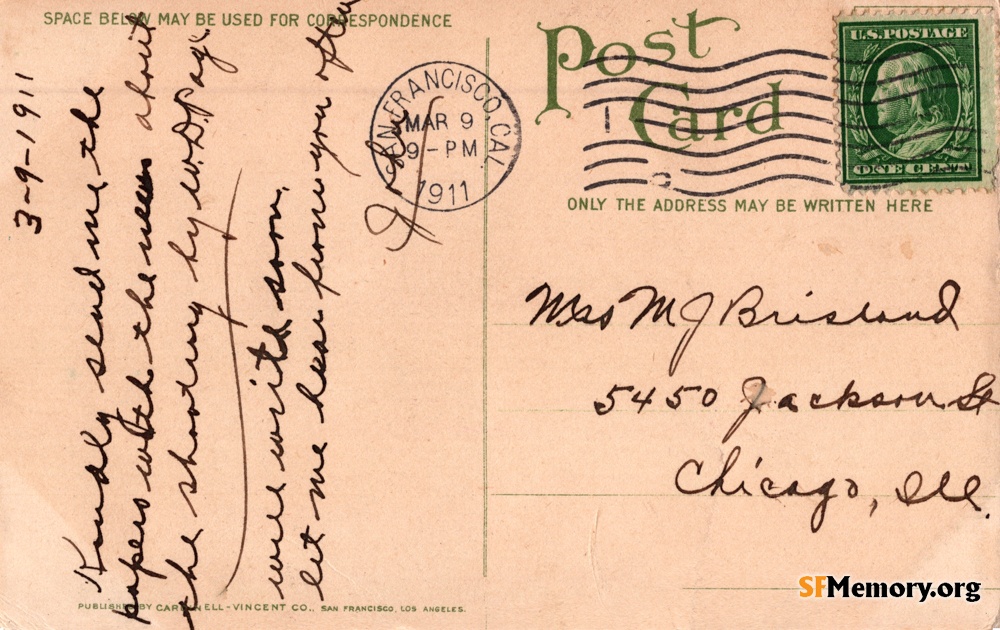 SPACE BELOW MAY BE USED FOR CORRESPONDENCE
3-9-1911
Kindly send me the
papers with the news about
the shooting by W.D. Page.
will write soon.
let me hear from you often
John
PUBLISHED BY CARDINELL-VINCENT CO., SAN FRANCISCO, LOS ANGELES.
Post
Card
SAN FRANCISCO, CAL.
MAR 9
9-PM
1911
1
U.S. POSTAGE
ONE CENT
ONLY THE ADDRESS MAY BE WRITTEN HERE
M J Brisland
5450 Jackson St
Chicago, Ill.
SFMemory.org